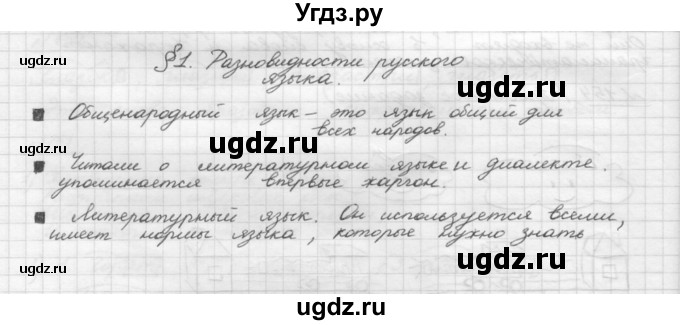 Угдз.ру
§1. Разновидности русского
языка.
ugdz.ru ugdz.ru ugdz.ru
Общенародный язык – это язык общий для
всех народов.
ugdz.ru
Читали о литературном языке и диалекте.
упоминается впервые жаргон.
ugdz.ru ugdz.ru
Литературный язык. Он используется всеми,
имеет нормы языка, которые нужно знать
ugdz.ru ugdz.ru
ugdz.ru